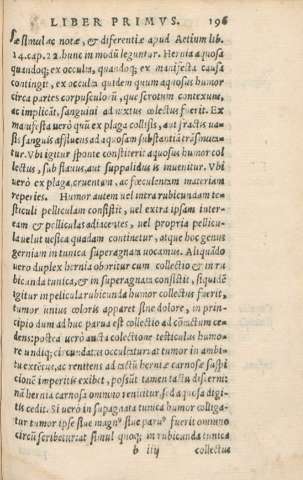 LIBER PRIMVS. 196
sæ simul ac notæ, & differentiæ apud Aetium lib.
14. cap. 22. hunc in modũ leguntur. Hernia aquosa
quandoq; ex occulta, quandoq; ex manifesta causa
contingit, ex occulta quidem quum aquosus humor
circa partes corpusculorũ, quæ scrotum contexunt,
ac implicãt, sanguini ad nixtus collectus fuerit. Ex
manifesta uerò quũ ex plaga collisis, aut fractis ua-
sis sanguis assluens ad aquosam substantiã trãsmuta-
tur. Vbi igitur sponte constiterit aquosus humor col
lectus, sub flauus, aut suppalidus is inuenitur. Vbi
uerò ex plaga, cruentam, ac fæculentam materiam
reperies. Humor autem uel intra rubicundam te-
sticuli pelliculam consistit, uel extra ipsam inter-
eam & pelliculas adiacentes, uel propria pellicu-
la uelut uesica quadam continetur, atque hoc genus
herniam in tunica superagnata uocamus. Aliquãdo
uero duplex hernia oboritur cum collectio & in ru
bicanda tunica, & in superagnata consistit, siquidẽ
igitur in pelicula rubicunda humor collectus fuerit,
tumor unius coloris apparet sine dolore, in prin-
cipio dum ad huc parua est collectio ad cõtactum ce-
dens: postea uerò aucta colectione testiculus humo-
re undiq; circundatus occultatur at tumor in ambi-
tu extẽtus, ac renitens ad tactũ herniæ carnosæ suspi
cionẽ imperitis exibet, possũt tamen tactu discerni
nã hernia carnosa omnino renititur, sed aquosa digi-
tis cedit. Si uerò in supagnata tunica humor colliga-
tur tumor ipse siue magnꝰ siue paruꝰ fuerit omnino
circũ scribetur at simul quoq; in rubicanda tunica
b iiij collectus